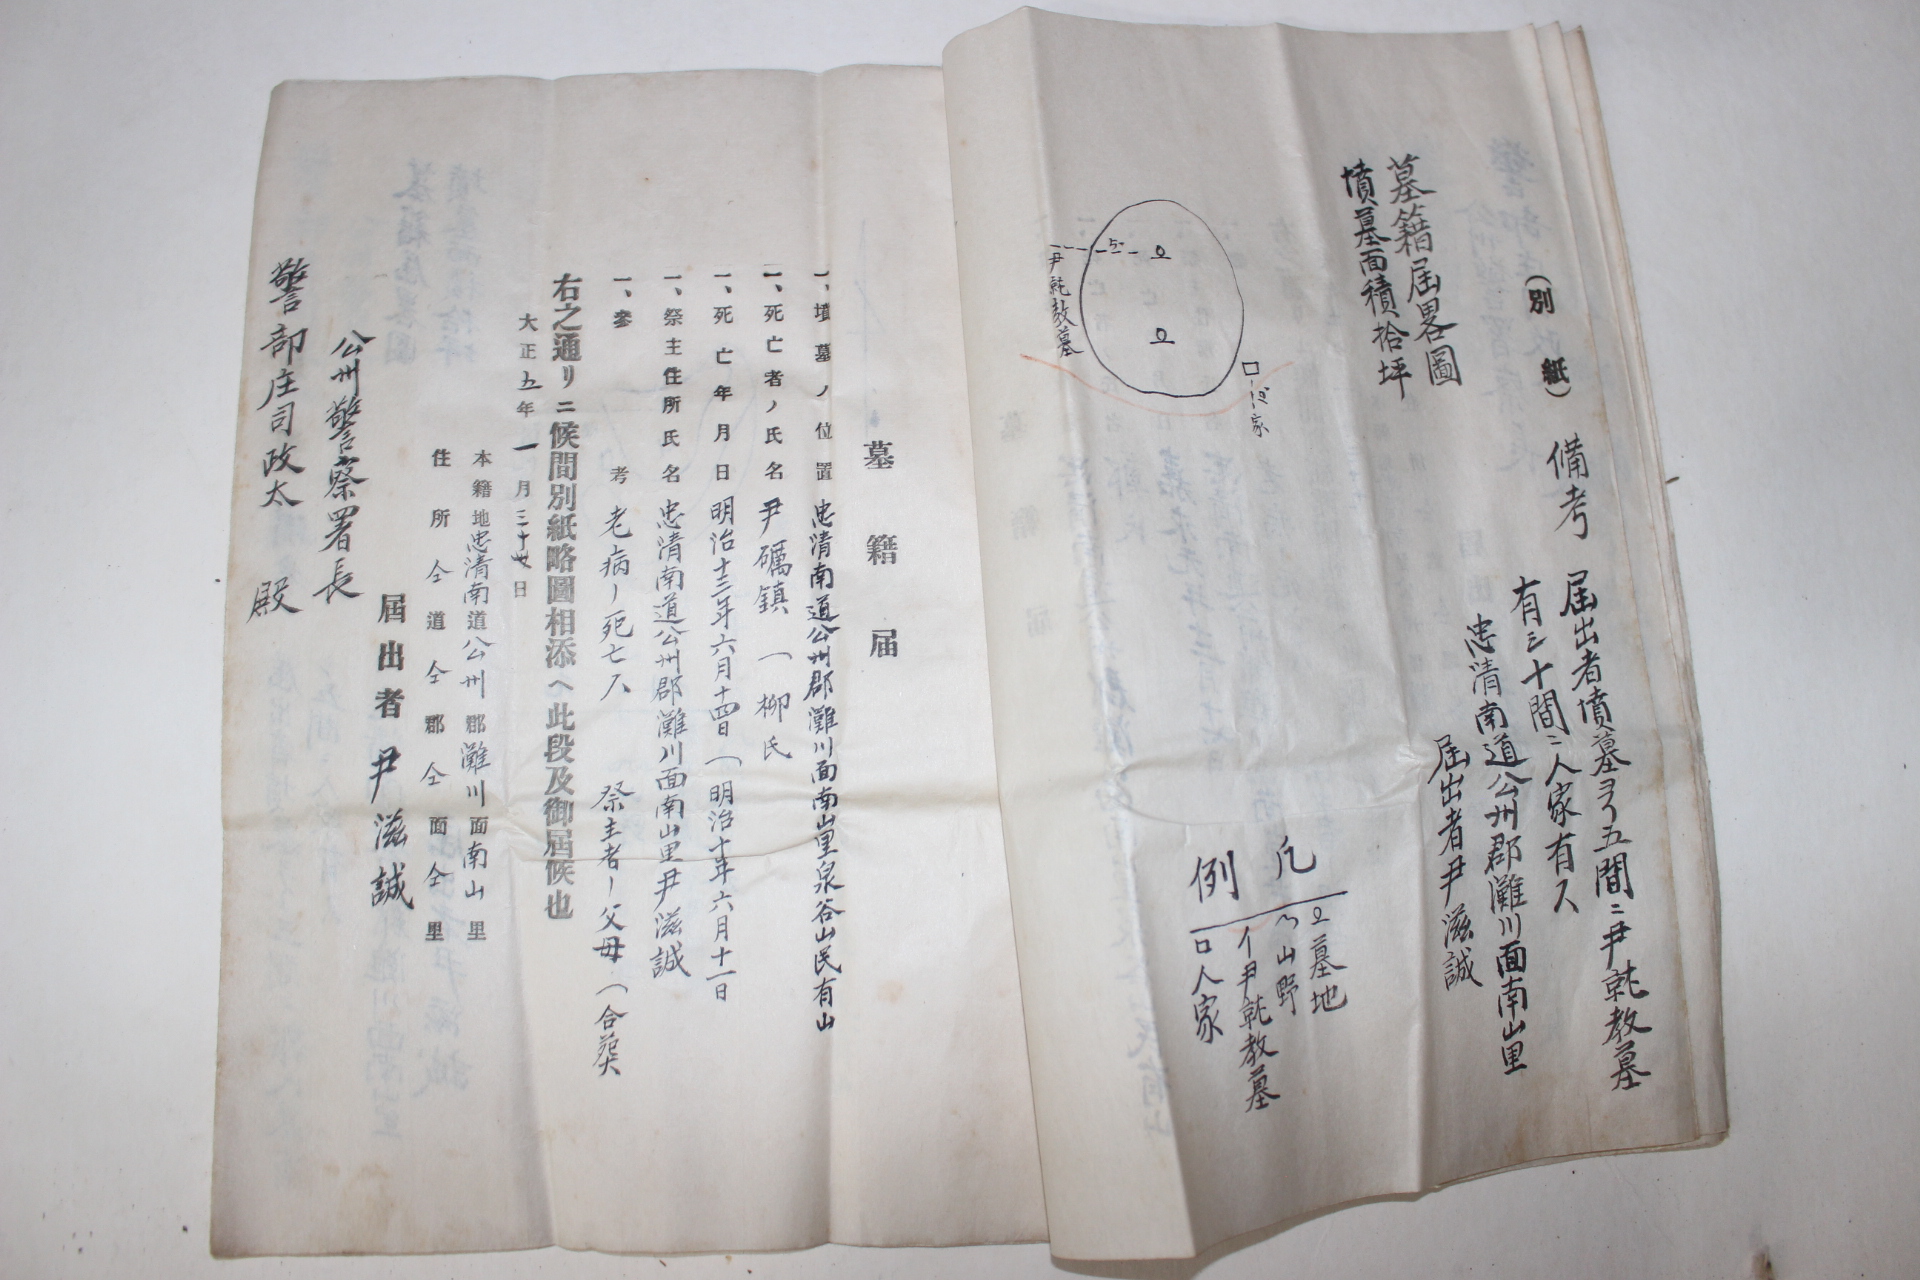 (別紙)
墓籍届畧圖
墳墓面積拾坪
尹乾教墓
五
人家
備考
届出者墳墓ヨリ五間ニ尹乾教墓
有三十間ニ人家有ス
忠清南道公州郡灘川面南山里
届出者尹滋誠
凡例
墓地
山野
イ尹乾教墓
口人家
墓籍届
一、墳墓ノ位置 忠清南道公州郡灘川面南山里泉谷山民有山
一、死亡者ノ氏名 尹礪鎮 (柳氏
一、死亡年月日 明治十三年六月十四日 (明治十年六月十一日
一、祭主住所氏名 忠清南道公州郡灘川面南山里尹滋誠
一、参考 老病ノ死亡ス 祭主者ノ父母 (合葬
右之通リニ候間別紙略圖相添ヘ此段及御届候也
大正五年一月三十日
本籍地忠清南道公州郡灘川面南山里
住所仝道仝郡仝面仝里
届出者 尹滋誠
公州警察署長
警部庄司政太 殿